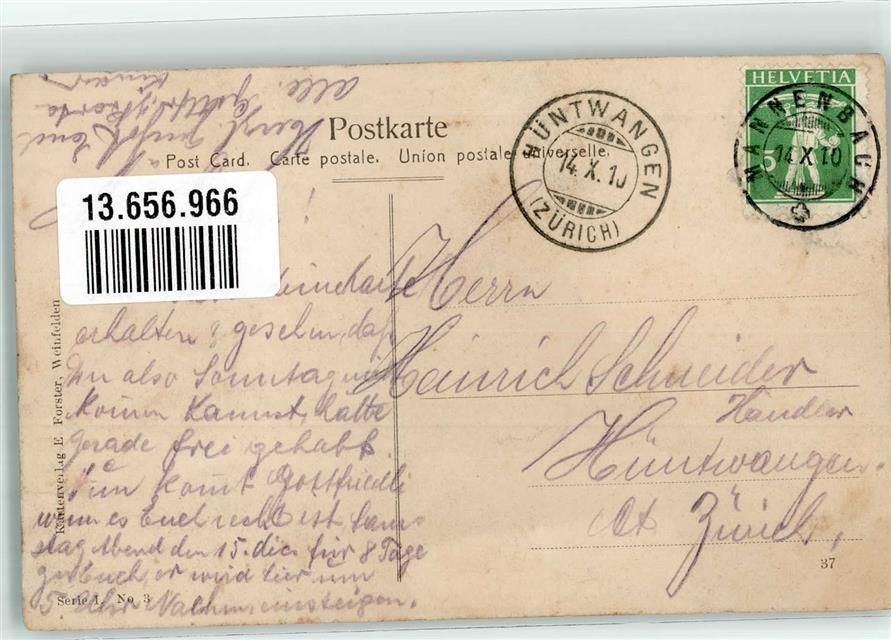 Postkarte
Post Card. Carte postale. Union postale universelle.
HÜNTWANGEN
14. X. 10
(ZÜRICH)
HELVETIA
5
MANNENBACH
14 X 10
13.656.966
alle
Herzl.
Kartenverlag E. Forster, Weinfelden
Herrn
Heinrich Schneider
Handler
Hüntwangen
Kt. Zürich,
37
deine Karte
erhalten & gesehen, daß
Du also Sonntag nicht
komen kannst, hätte
gerade frei gehabt.
Nun komt Gottfriedli
wenn es Euch recht ist, Sams
stag Abend den 15. dies für 8 Tage
zu Euch, er wird hier um
5 Uhr Nachm. einsteigen.
Serie I. No 3